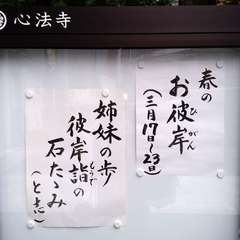 心法寺
春の
お彼岸
ひがん
(三月17日~23日)
姉妹の歩
彼岸詣の
もうで
石たゝみ
(と志)